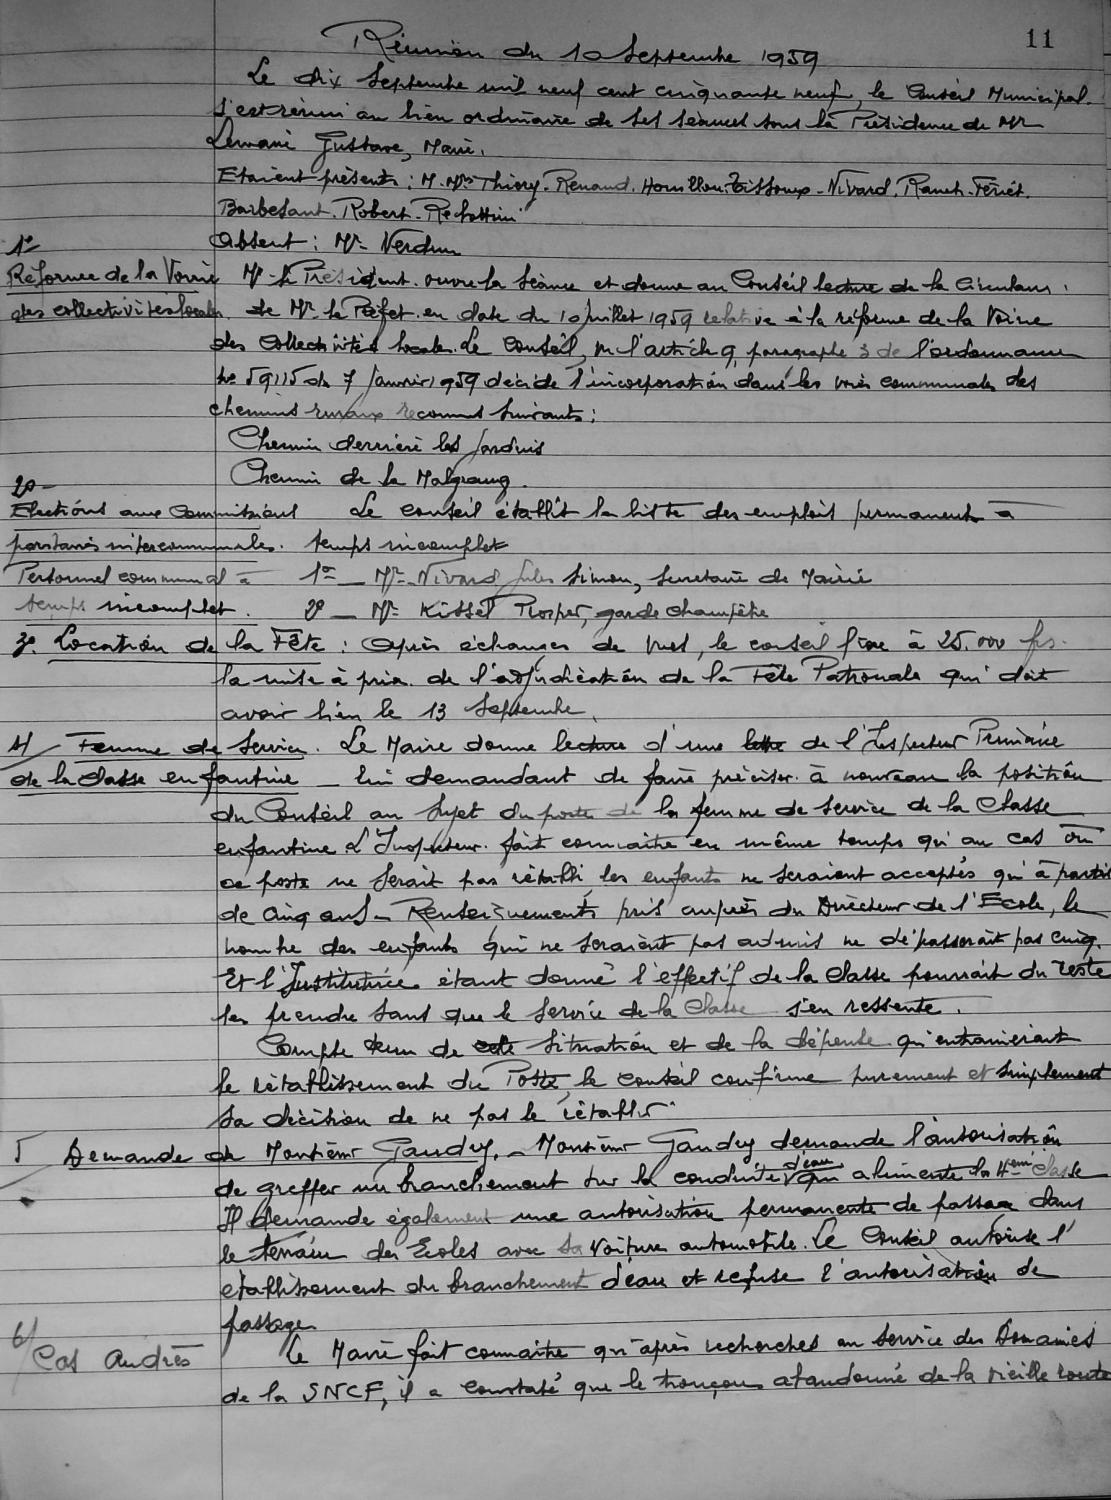 11
Réunion du 10 Septembre 1959
Le dix Septembre mil neuf cent cinquante neuf, le Conseil Municipal.
S'est réuni au lieu ordinaire de ses séances sous la Présidence de Mr
Gustave, Maire.
Etaient présents : M. Mrs Thiery. Renaud. Houillon. Tissoux - Nivard. Ranch. Feriet.
Barbesant. Robert.
Absent : Mr - Verdun
1°
Réforme de la Voirie Mr le Président ouvre la séance et donne au Conseil lecture de la Circulaire
des collectivités locales. de Mr le Préfet en date du 10 juillet 1959 relative à la réforme de la Voirie
des Collectivités locales. Le Conseil, vu l'article 9, paragraphe 3 de l'ordonnance
No 59115 du 7 Janvier 1959 décide l'incorporation dans les voies communales des
chemins ruraux reconnus suivants :
Chemin derrière les Jardins
Chemin de la Malgrang.
2° -
Elections aux Commissions Le conseil établit la liste des emplois permanents à
paritaires intercommunales. temps incomplet
Personnel communal à 1° _ Mr - Nivard Jules Simon, Secrétaire de Mairie
temps incomplet. 2° _ Mr = Kissel Prosper, garde champêtre
3° Location de la Fête : Après échanges de vues, le conseil fixe à 25.000 frs.
la mise à prix de l'adjudication de la Fête Patronale qui doit
avoir lieu le 13 Septembre.
4/ Femme de Service. Le Maire donne lecture d'une lettre de l'Inspecteur Primaire
de la classe enfantine _ lui demandant de faire préciser à nouveau la position
du Conseil au sujet du poste de la femme de service de la Classe
enfantine. L'Inspecteur fait connaitre en même temps qu'au cas où
ce poste ne serait pas rétabli les enfants ne seraient acceptés qu'à partir
de cinq ans _ Renseignements pris auprès du Directeur de l'Ecole, le
nombre des enfants qui ne seraient pas admis ne dépasserait pas cinq.
Et l'Institutrice étant donné l'effectif de la Classe pourrait du reste
les prendre sans que le service de la Classe s'en ressente.
Compte tenu de cette situation et de la dépense qu'entrainerait
le rétablissement du Poste, le conseil confirme purement et simplement
sa décision de ne pas le rétablir.
5 Demande de Monsieur Gaudey. _ Monsieur Gaudey demande l'autorisation
de greffer un branchement sur la conduite d'eau qui alimente la 4ème Classe
Il demande également une autorisation permanente de passage dans
le terrain des Ecoles avec sa voiture automobile. Le Conseil autorise l'
établissement du branchement d'eau et refuse l'autorisation de
passage
6/
Cas Andrès Le Maire fait connaitre qu'après recherches au service des Domaines
de la SNCF, il a constaté que le tronçon abandonné de la vieille route